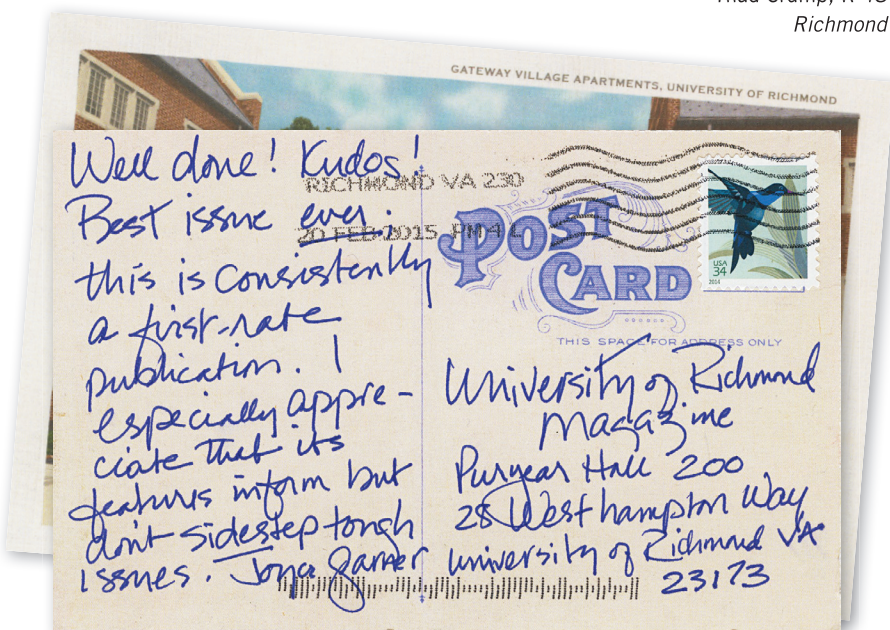 Richmond
GATEWAY VILLAGE APARTMENTS, UNIVERSITY OF RICHMOND
Well done! Kudos!
Best issue ever:
this is consistently
a first-rate
publication. I
especially appre-
ciate that its
features inform but
don't sidestep tough
issues.
RICHMOND VA 230
20 FEB 2015 PM 4 L
POST
CARD
USA
34
2014
THIS SPACE FOR ADDRESS ONLY
University of Richmond
Magazine
Puryear Hall 200
28 Westhampton Way
University of Richmond VA
23173